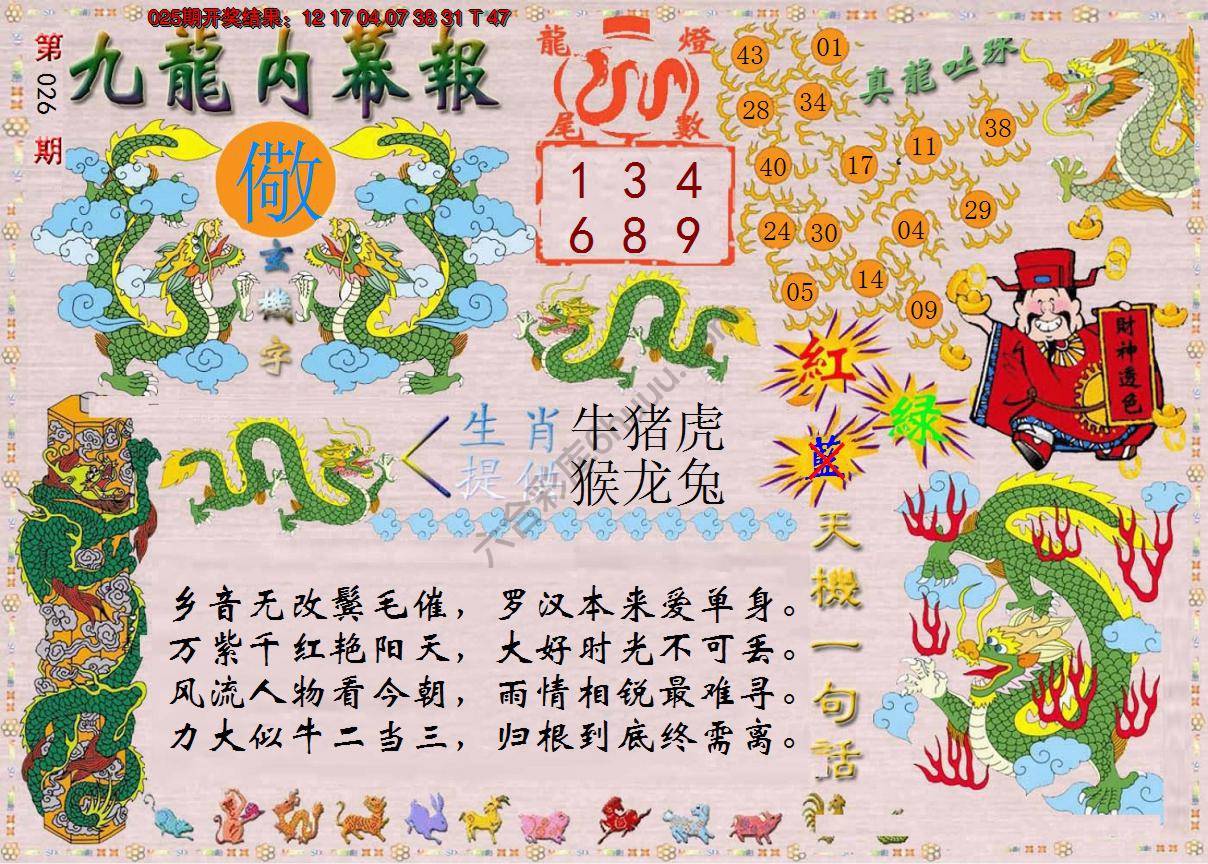 025期开奖结果：12 17 04 07 38 31 T 47
第026期
九龍内幕報
儆
玄機字
龍燈尾數
1 3 4
6 8 9
真龍吐珠
43 01
28 34
40 17 11 38
24 30 04 29
05 14 09
財神透色
紅
緑
藍
生肖 牛猪虎
提供 猴龙兔
天機一句話
乡音无改鬓毛催，罗汉本来爱单身。
万紫千红艳阳天，大好时光不可丢。
风流人物看今朝，雨情相锐最难寻。
力大似牛二当三，归根到底终需离。